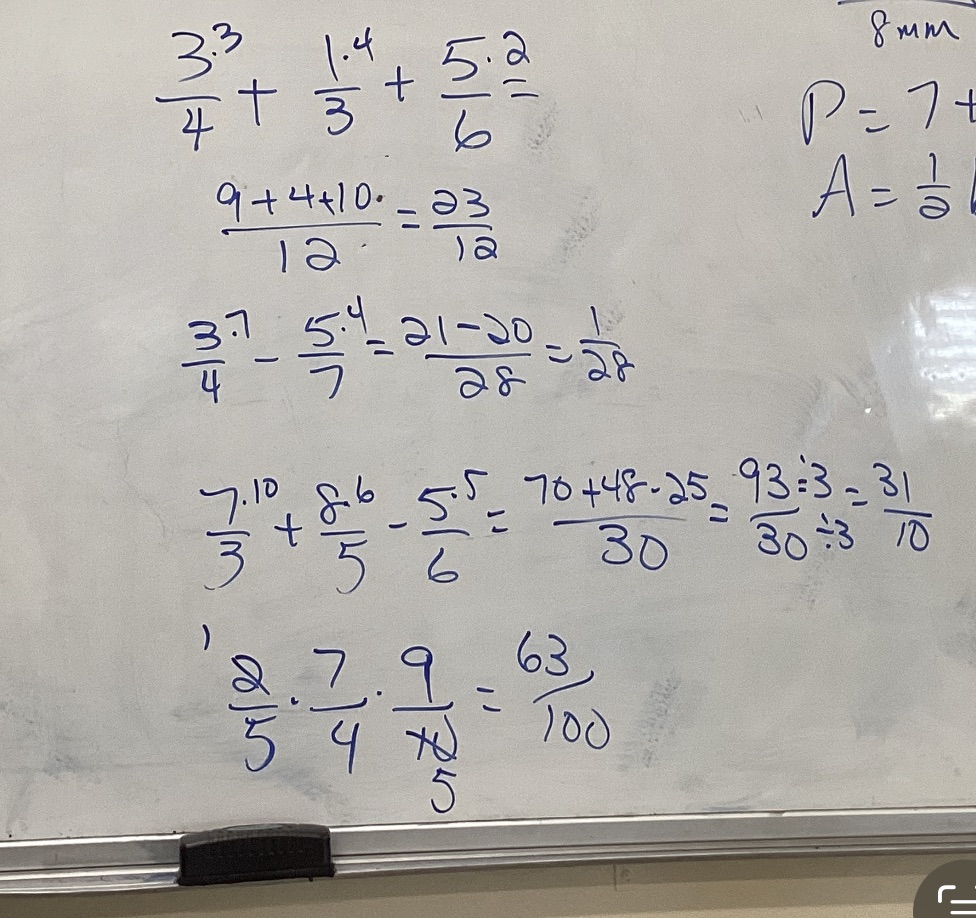 3·3/4 + 1·4/3 + 5·2/6 =
9+4+10/12 = 23/12
3·7/4 - 5·4/7 = 21-20/28 = 1/28
7·10/3 + 8·6/5 - 5·5/6 = 70+48-25/30 = 93÷3/30÷3 = 31/10
1
2/5 · 7/4 · 9/10 = 63/100
5
8mm
P = 7+
A = 1/2